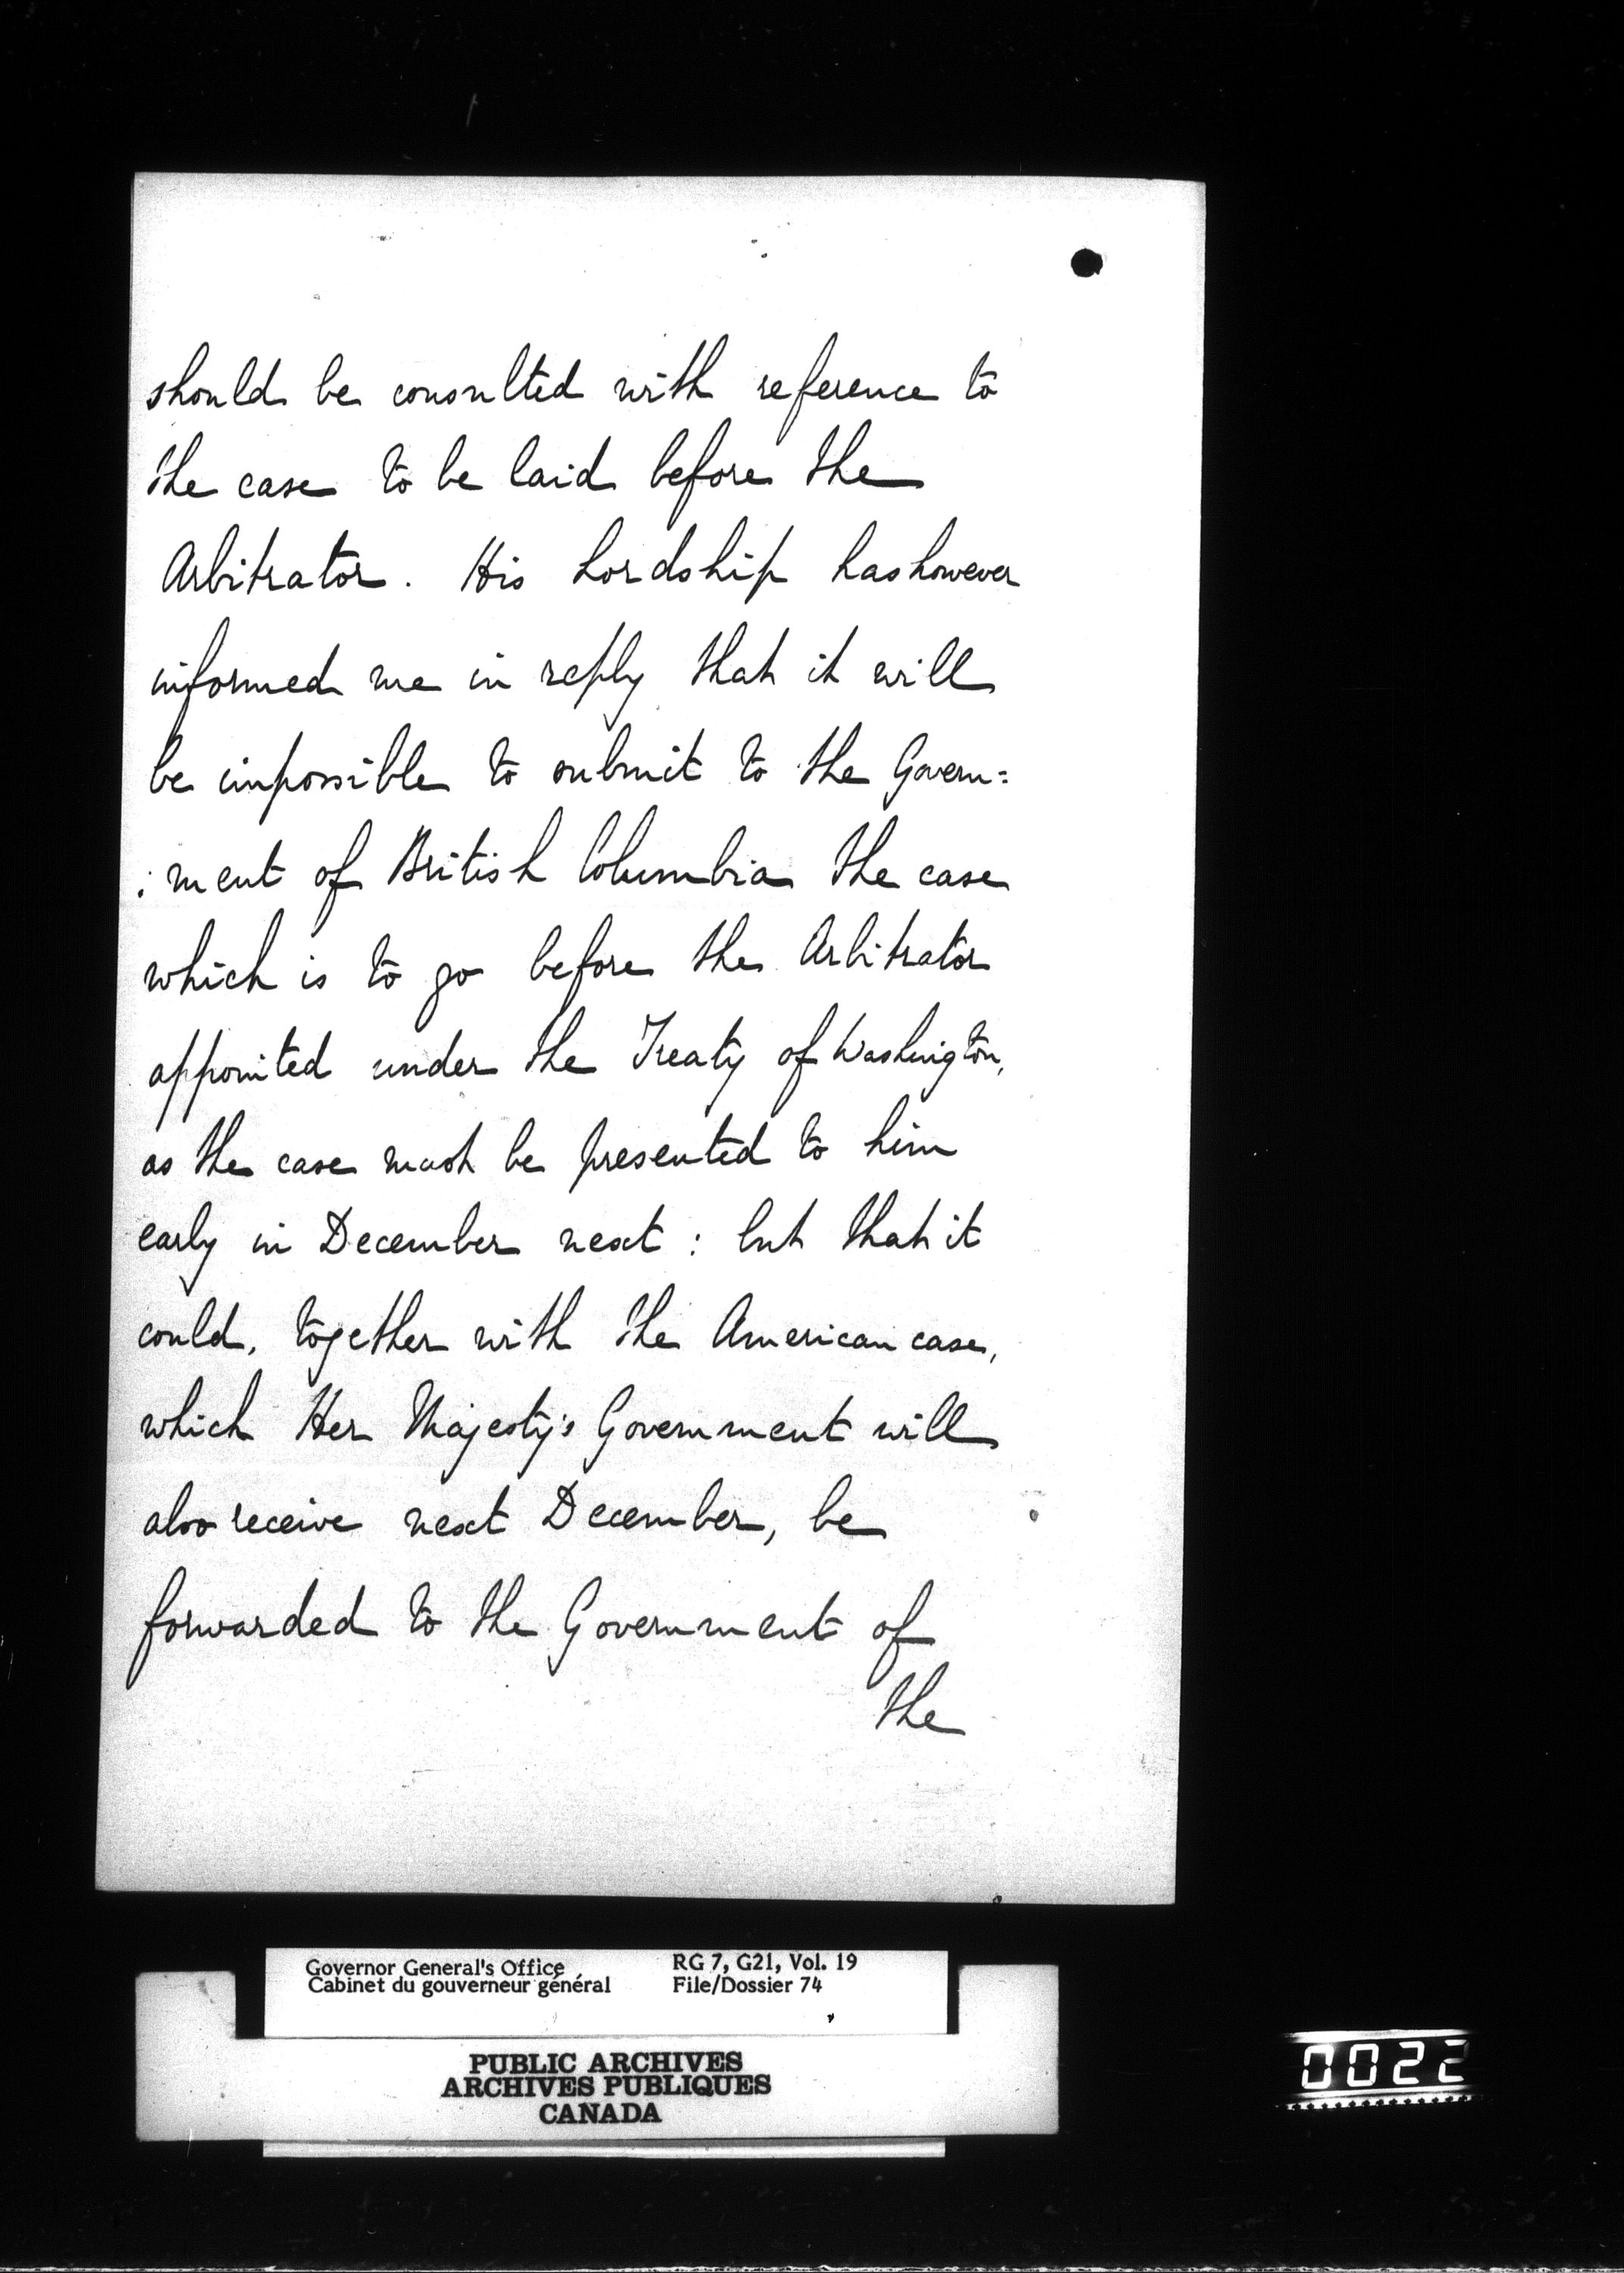 should be consulted with reference to
the case to be laid before the
Arbitrator. His Lordship has however
informed me in reply that it will
be impossible to submit to the Govern=
:ment of British Columbia the case
which is to go before the Arbitrator
appointed under the Treaty of Washington,
as the case must be presented to him
early in December next : but that it
could, together with the American case,
which Her Majesty's Government will
also receive next December, be
forwarded to the Government of
the
Governor General's Office
Cabinet du gouverneur général
RG 7, G21, Vol. 19
File/Dossier 74
PUBLIC ARCHIVES
ARCHIVES PUBLIQUES
CANADA
0022